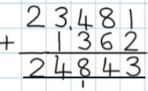 23.481
+ 1362
24843
1